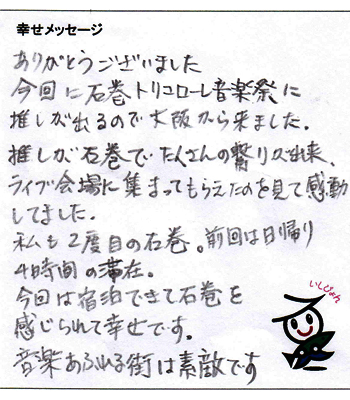 幸せメッセージ
ありがとうございました
今回に石巻トリコローレ音楽祭に
推しが出るので大阪から来ました.
推しが石巻でたくさんの繋りが出来、
ライブ会場に集まってもらえたのを見て感動
してました.
私も2度目の石巻。前回は日帰り
4時間の滞在。
今回は宿泊できて石巻を
感じられて幸せです。
音楽あふれる街は素敵です
いしぴょん